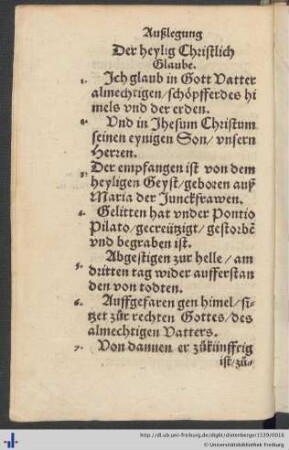 Außlegung
Der heylig Christlich
Glaube.
1. Jch glaub in Gott Vatter
almechtigen/schöpffer des hi
mels vnd der erden.
2. Vnd in Jhesum Christum
seinen eynigen Son/vnsern
Herren.
3. Der empfangen ist von dem
heyligen Geyst/geboren auß
Maria der Junckfrawen.
4. Gelitten hat vnder Pontio
Pilato/gecreützigt/gestorbē
vnd begraben ist.
Abgestigen zur helle/am
5. dritten tag wider aufferstan
den von todten.
6. Auffgefaren gen himel/si-
tzet zůr rechten Gottes/des
almechtigen Vatters.
7. Von dannen er zůkünfftig
ist/zů-
http://dl.ub.uni-freiburg.de/diglit/dietenberger1539/0016
© Universitätsbibliothek Freiburg